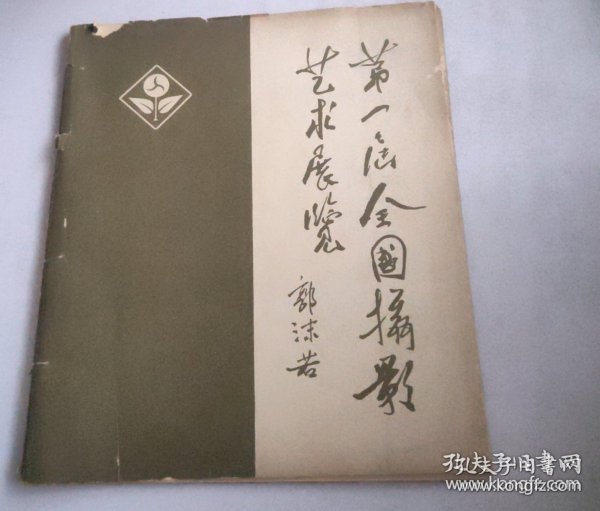 第一届全國攝影
艺术展览
郭沫若
孔夫子旧书网
www.kongfz.com